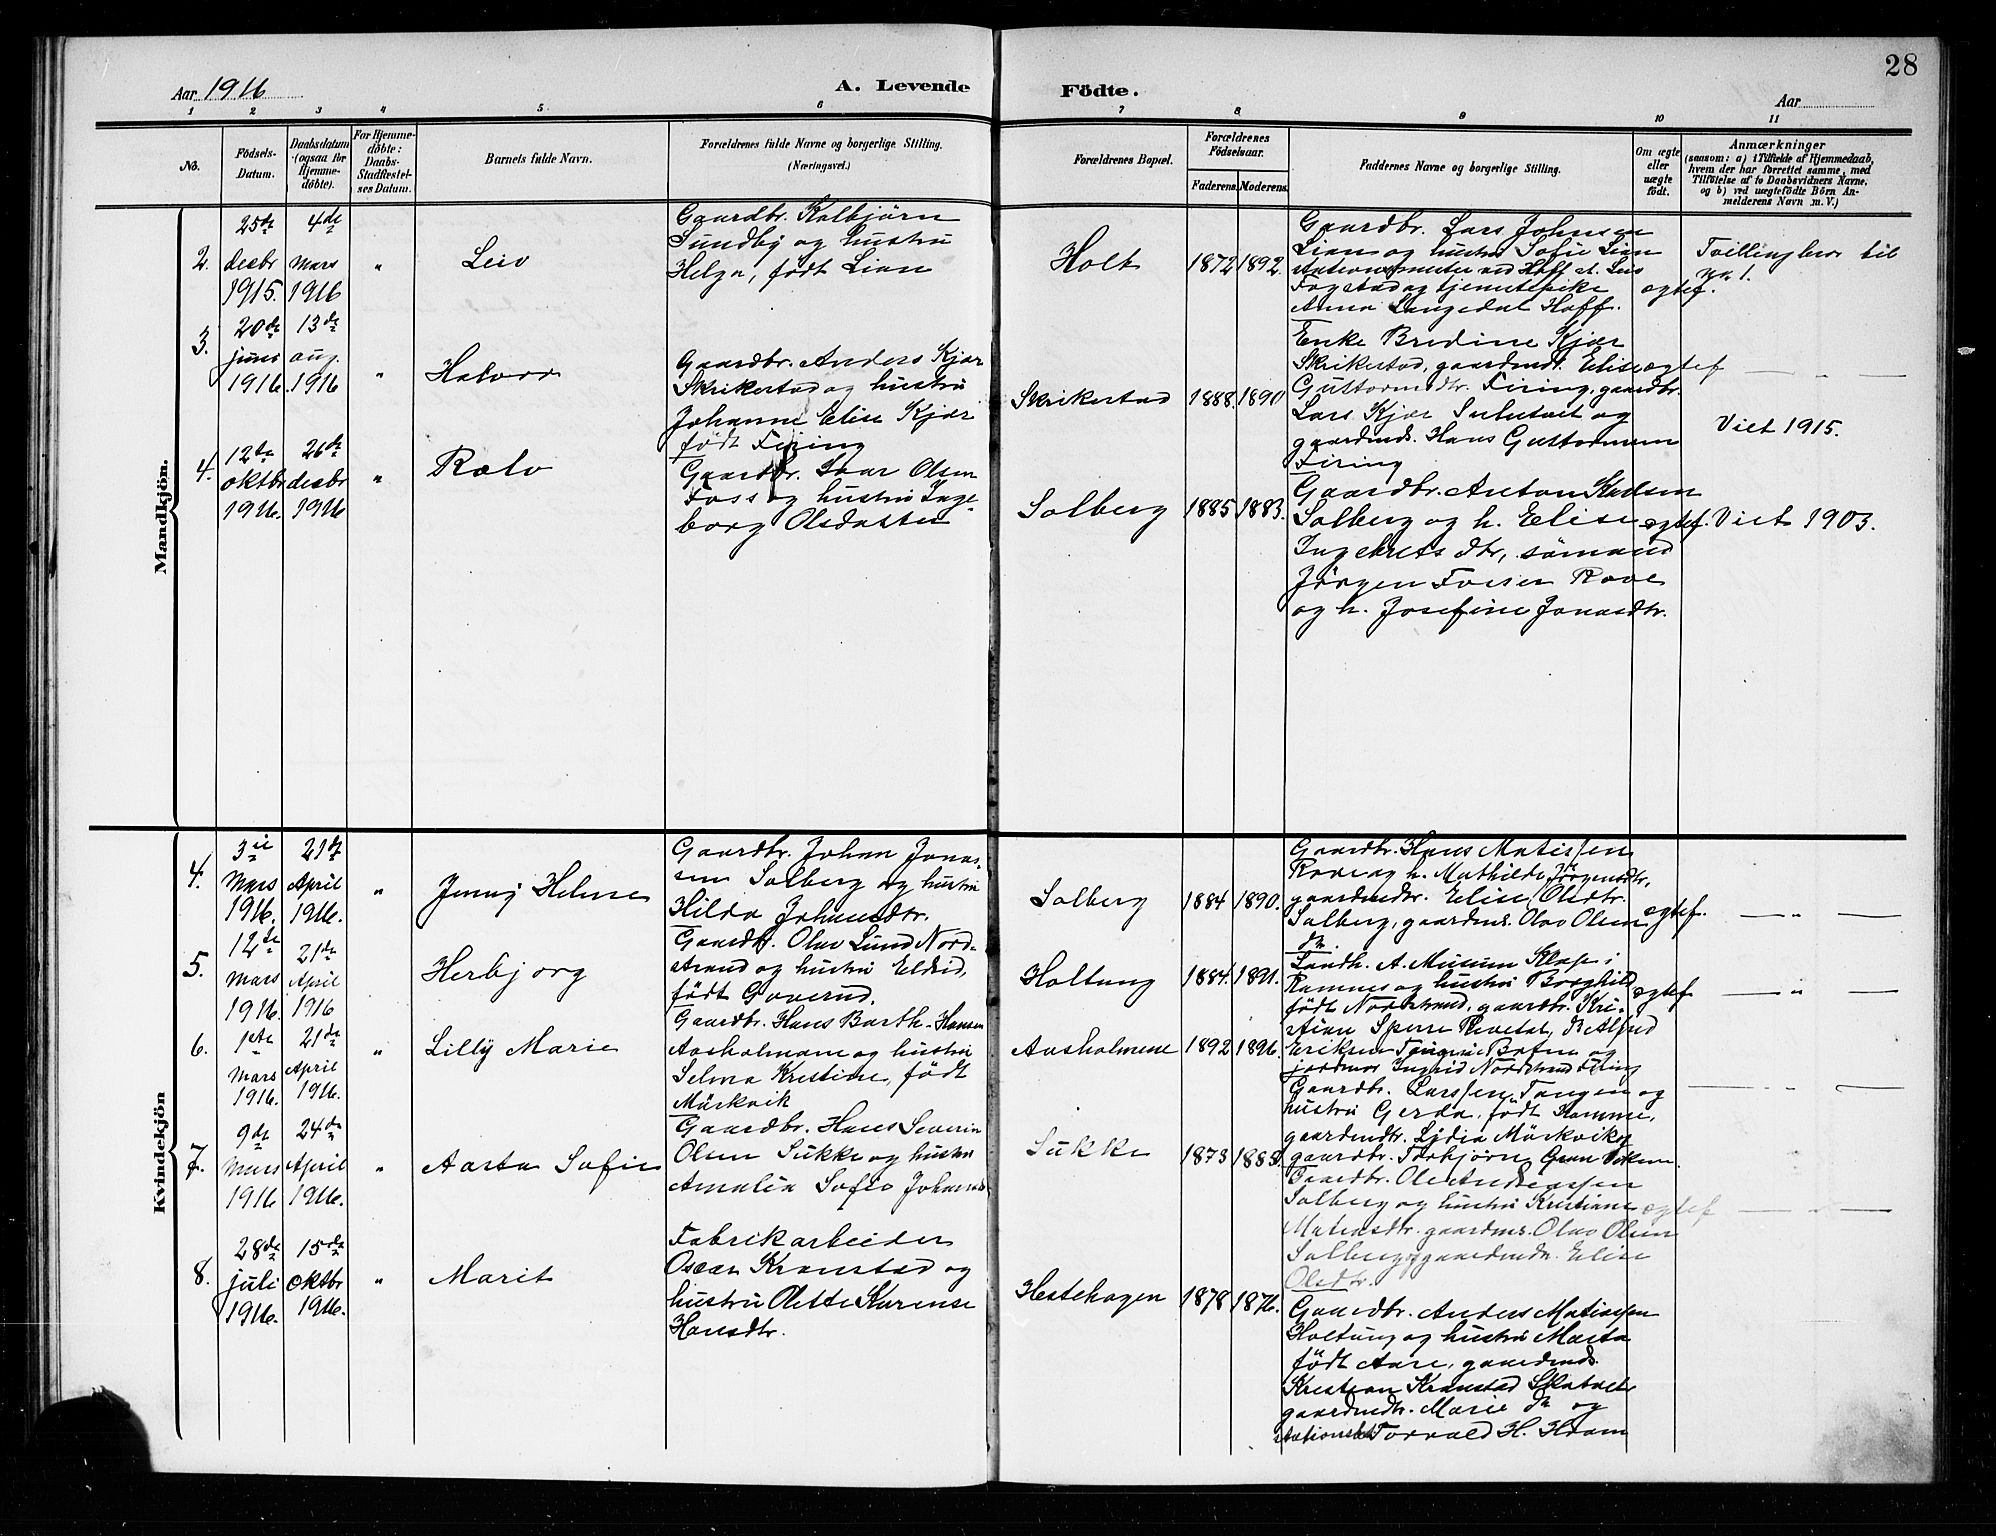 28
Aar 1916
A. Levende
Födte.
Aar
1 2 3 4 5 6 7 8 9 10 11
No.
Födsels-
Datum.
Daabsdatum
(ogsaa for
Hjemme-
döbte).
For Hjemme-
döbte:
Daabs-
Stadfæstel-
ses Datum.
Barnets fulde Navn.
Forældrenes fulde Navne og borgerlige Stilling.
(Næringsvei.)
Forældrenes Bopæl.
Forældrenes
Födselsaar.
Faderens. Moderens.
Faddernes Navne og borgerlige Stilling.
Om ægte
eller
uægte
födt.
Anmærkninger
(saasom: a) i Tilfælde af Hjemmedaab,
hvem der har forrettet samme, med
Tilföielse af to Daabsvidners Navne,
og b) ved uægtefödte Börn An-
melderens Navn m. V.)
Mandkjön.
2.
25de
decbr
1915.
4de
mars
1916
"
Leiv
Gaardbr. Kolbjörn
Sundby og hustru
Helga, født Lian
Holt
1872 1892.
Gaardbr. Lars Johnsen
Lian og hustru Sofie Lian
stationsmester ved Hoff st. Leis
Fogstad og tjenestepike
Anna Langedal Hoff.
egtef.
Tvillingbror til
nr. 1.
3.
20de
juni
1916.
13de
aug.
1916
"
Halvor
Gaardbr. Anders Kjær
Skrikestad og hustru
Johanne Elise Kjær
født Firing
Skrikestad
1888. 1890
Enke Bredine Kjær
Skrikestad, gaardmdt. Elise
Guttormsdtr. Firing, gaardbr.
Lars Kjær og
gaardmds. Hans Guttormsen
Firing
egtef
— " —
Viet 1915.
4.
12te
oktbr
1916.
26de
decbr
1916
"
Rolv
Gaardbr. Ivar Olsen
Foss og hustru Inge-
borg Olsdatter
Solberg
1885 1883.
Gaardbr. Anton Karlsen
Solberg og h. Elise
Ingebrets dtr, sömand
Jörgen Rove
og h. Josefine Jonasdtr.
egtef.
Viet 1903.
Kvindekjön
4.
3ie
mars
1916.
21de
April
1916.
"
Jenny Helene
Gaardbr. Johan Jonas-
sen Solberg og hustru
Hilda Johansdtr.
Solberg
1884 1890.
Gaardbr. Hans Matissen
Rove og h. Mathilde Jörgensdtr,
gaardmdtr. Elise Olsdtr.
Solberg, gaardms. Olav Olsen
do.
egtef.
— " —
5.
12te
mars
1916.
21de
April
1916
"
Herbjorg
Gaardbr. Olav Lund Nord-
strand og hustru Eldrid,
født Goverud.
Holtung
1884. 1891.
Landh. A. Klop i
Ramnes og hustru Borghild
født Nordstrand, gaardbr. Kri-
stian Sperre Revetal, do Alfred
Eriksen og
Ingrid Nordstrand Firing
egtef
— " —
6.
1ste
mars
1916.
21de
April
1916.
"
Lilly Marie
Gaardbr. Hans Barth-Hansen
Aasholmene og hustru
Selma Kristine, født
Mörkvik
Aasholmene
1892 1896.
Gaardbr. Larssen Tangen og
hustru Gerda, født Homme,
gaardmdtr. Lydia Mörkvik og
gaardbr. Torbjörn Gran
— " —
7.
9de
mars
1916
24de
April
1916.
"
Aasta Sofie
Gaardbr. Hans Severin
Olsen Sukke og hustru
Amalia Sofie Johansd.
Sukke
1873 1883.
Gaardbr. Ole Andreassen
Solberg og hustru Kristiane
Matiasdtr. gaardms. Olav Olsen
Solberg og gaardmdtr. Elise
Olsdtr.
egtef
— " —
8.
28de
juli
1916.
15de
oktbr
1916.
"
Marit
Fabrikarbeider
Oscar Kronstad og
hustru Olette Karense
Hansdtr.
Hestehagen
1878 1876.
Gaardbr. Anders Matiassen
Holtung og hustru Marta
født Aare, gaardmds.
Kristian Kronstad Skatvelt
gaardmdtr. Marie do og
Torvald H. Hvam